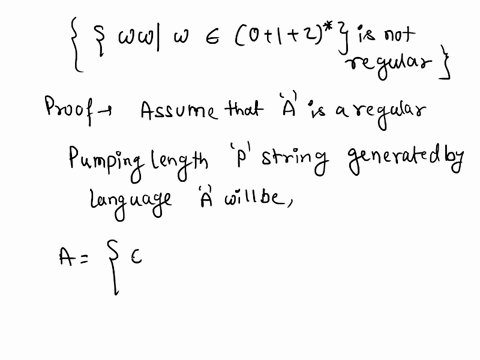 { { ww| w ∈ (0+1+2)*} is not
regular }
Proof → Assume that 'A' is a regular
Pumping length 'p' string generated by
language 'A' will be,
A = { ε